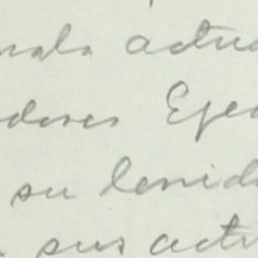 mala actua
dores Eje
su lenid
sus acti